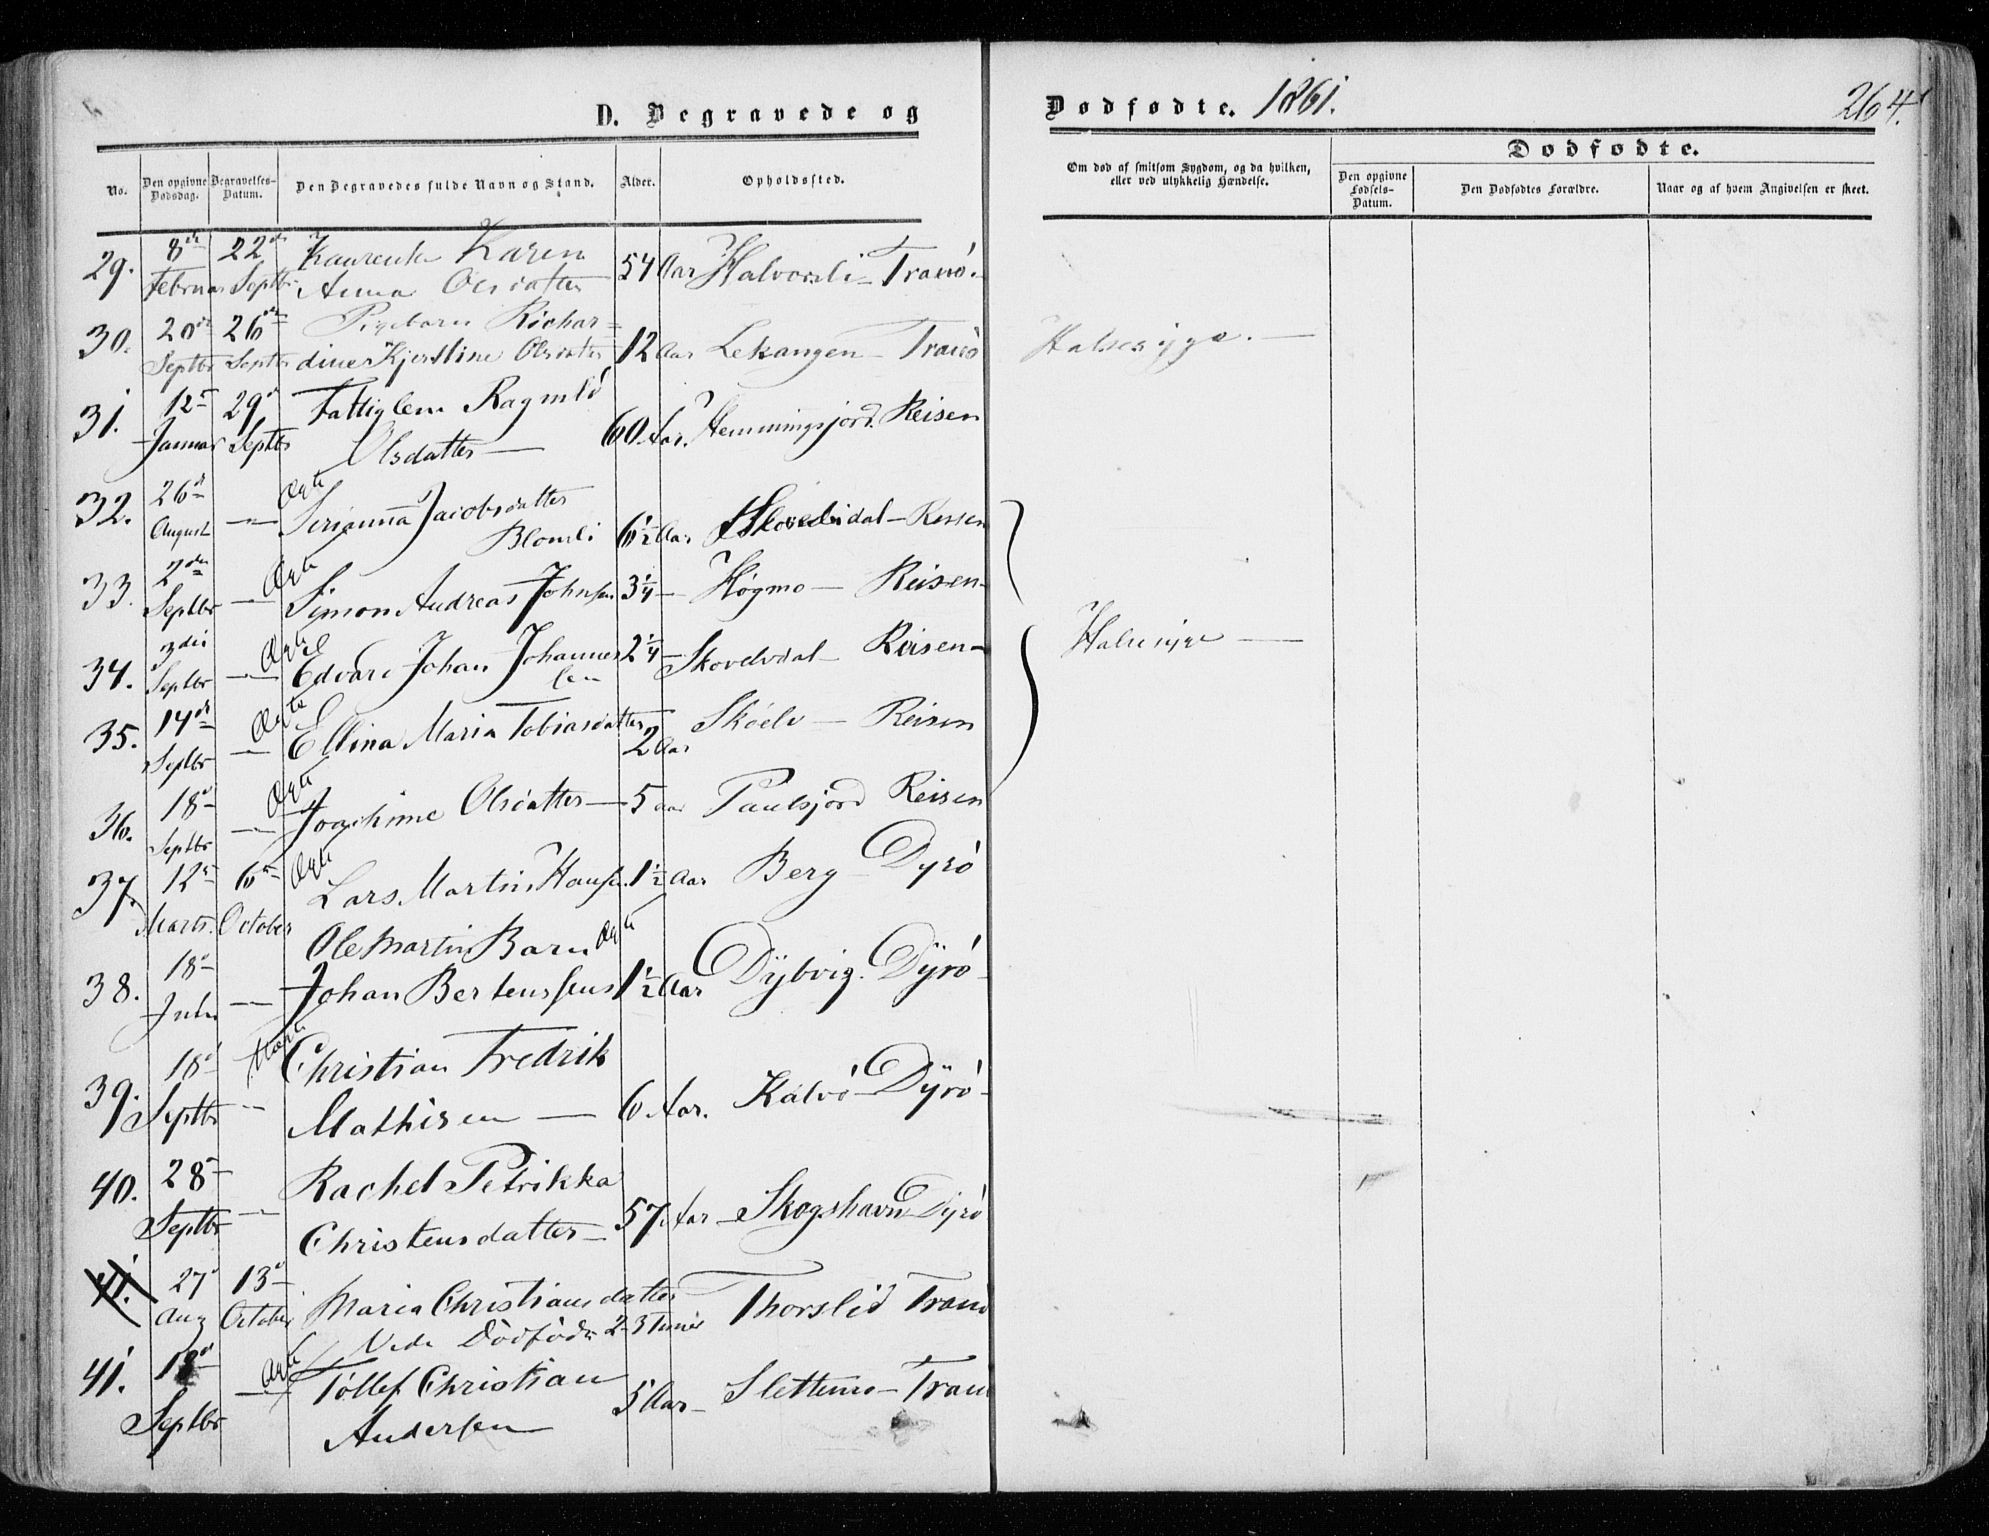 D. Begravede og Dødfødte. 1861. 264.
No. Den opgivne Dødsdag. Begravelses-Datum. Den Begravedes fulde Navn og Stand. Alder. Opholdssted. Om død af smitsom Sygdom, og da hvilken, eller ved ulykkelig Hændelse. Dødfødte. Den opgivne Fødsels-Datum. Den Dødfødtes Forældre. Naar og af hvem Angivelsen er skeet.
29. 8de Februar 22de Septbr Karen
Anna Olsdatter 54 Aar Halvorsli - Tranö.
30. 20de Septbr 26de Septbr Pigebarn Richar=
dine Kjerstine Olsdatter 12 Aar Lekangen - Tranö Halsesyge. -
31. 12te Januar 29de Septbr Fattiglem Ragnild
Olsdatter - 60 Aar. Hemmingsjord. Reisen
32. 26de August - Ægte Serianna Jacobsdatter
Blomli 6½ Aar Skovelvdal - Reisen
33. 2den Septbr - Ægte Simon Andreas Johnsen 3¼ - Høgmo - Reisen -
34. 3die Septbr - Ægte Edvard Johan Johannes
sen 2¼ - Skovelvdal - Reisen - Halsesyge -
35. 14de Septbr - Ægte Ellina Maria Tobiasdatter 2 Aar Sköelv - Reisen
36. 18de Septbr - Ægte Joachime Olsdatter - 5 aar Paulsjord Reisen
37. 12te Marts. 6te October Ægte Lars Martin Hansen. 1½ Aar Berg - Dyrö
38. 18de - Ole Martin Barn Ægte
Johan Bertenssens 1½ Aar Dÿbvig. Dÿrö -
39. 18de Septbr - Christian Fredrik
Mathisen - 6 Aar. Kalvö - Dÿrö -
40. 28de Septbr - Rachel Petrikka
Christensdatter - 57 Aar - Skogshavn Dyrö
41. 27de Aug 13de October Maria Christiansdatter
Vide Dödfödte 2-3 Timer Thorslid Tranö
41. 18de Septbr - Ægte Tollef Christian
Andersen 5 Aar - Slettmo - Tranö